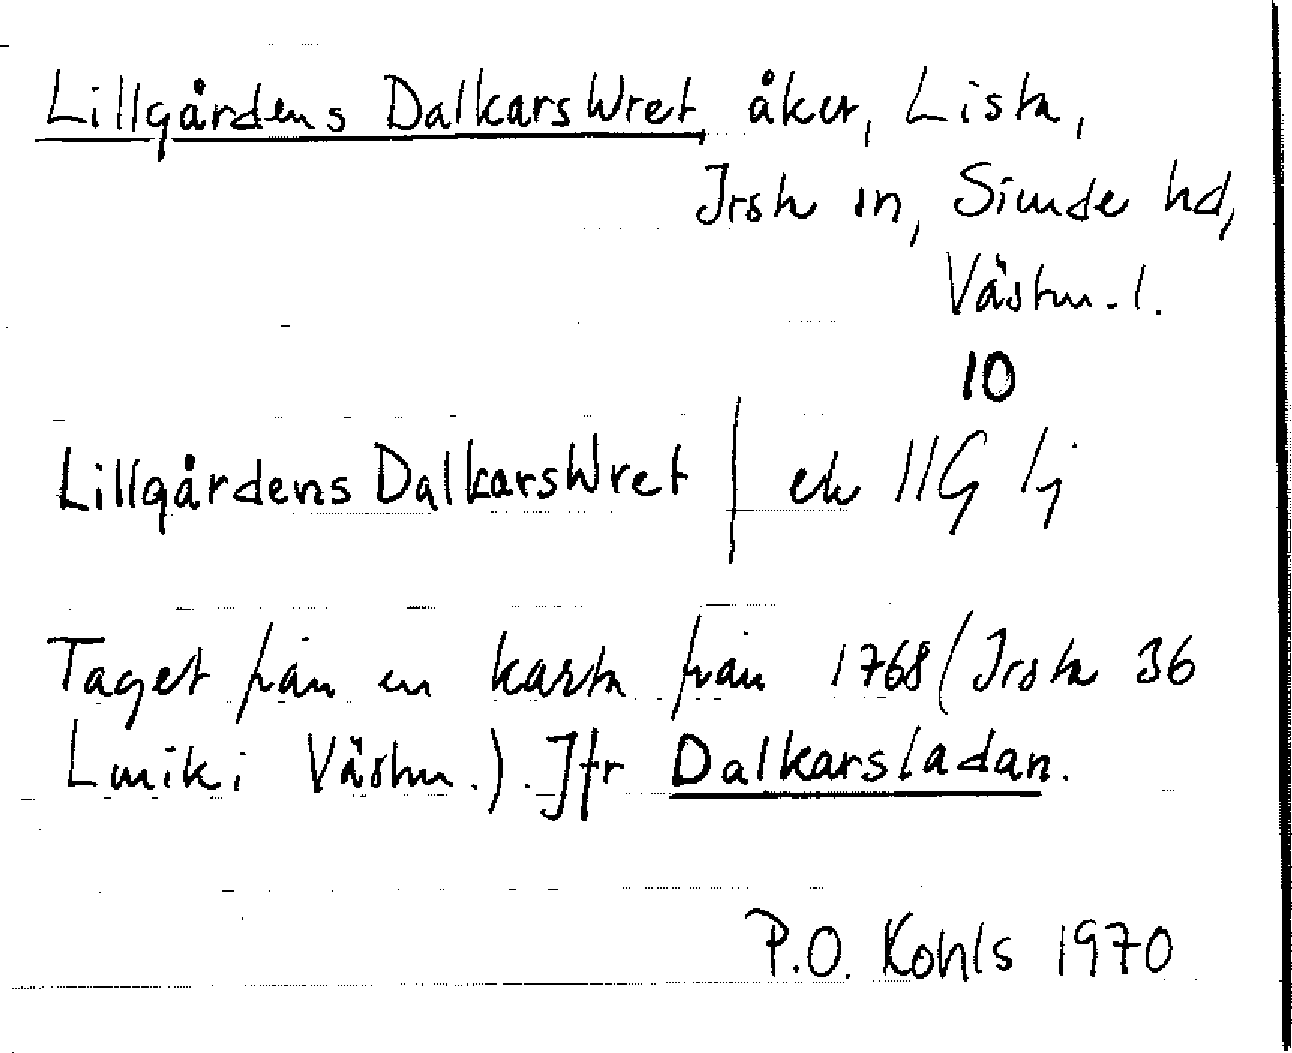 Lillgårdens DalkarsWret, åker, Lista,
Irsta sn, Siende hd,
Västm. l.
10
Lillgårdens DalkarsWret
Taget från en karta från 1768 (Irsta 36
Lmik i Västm.). Jfr Dalkarsladan.
P.O. Kohls 1970